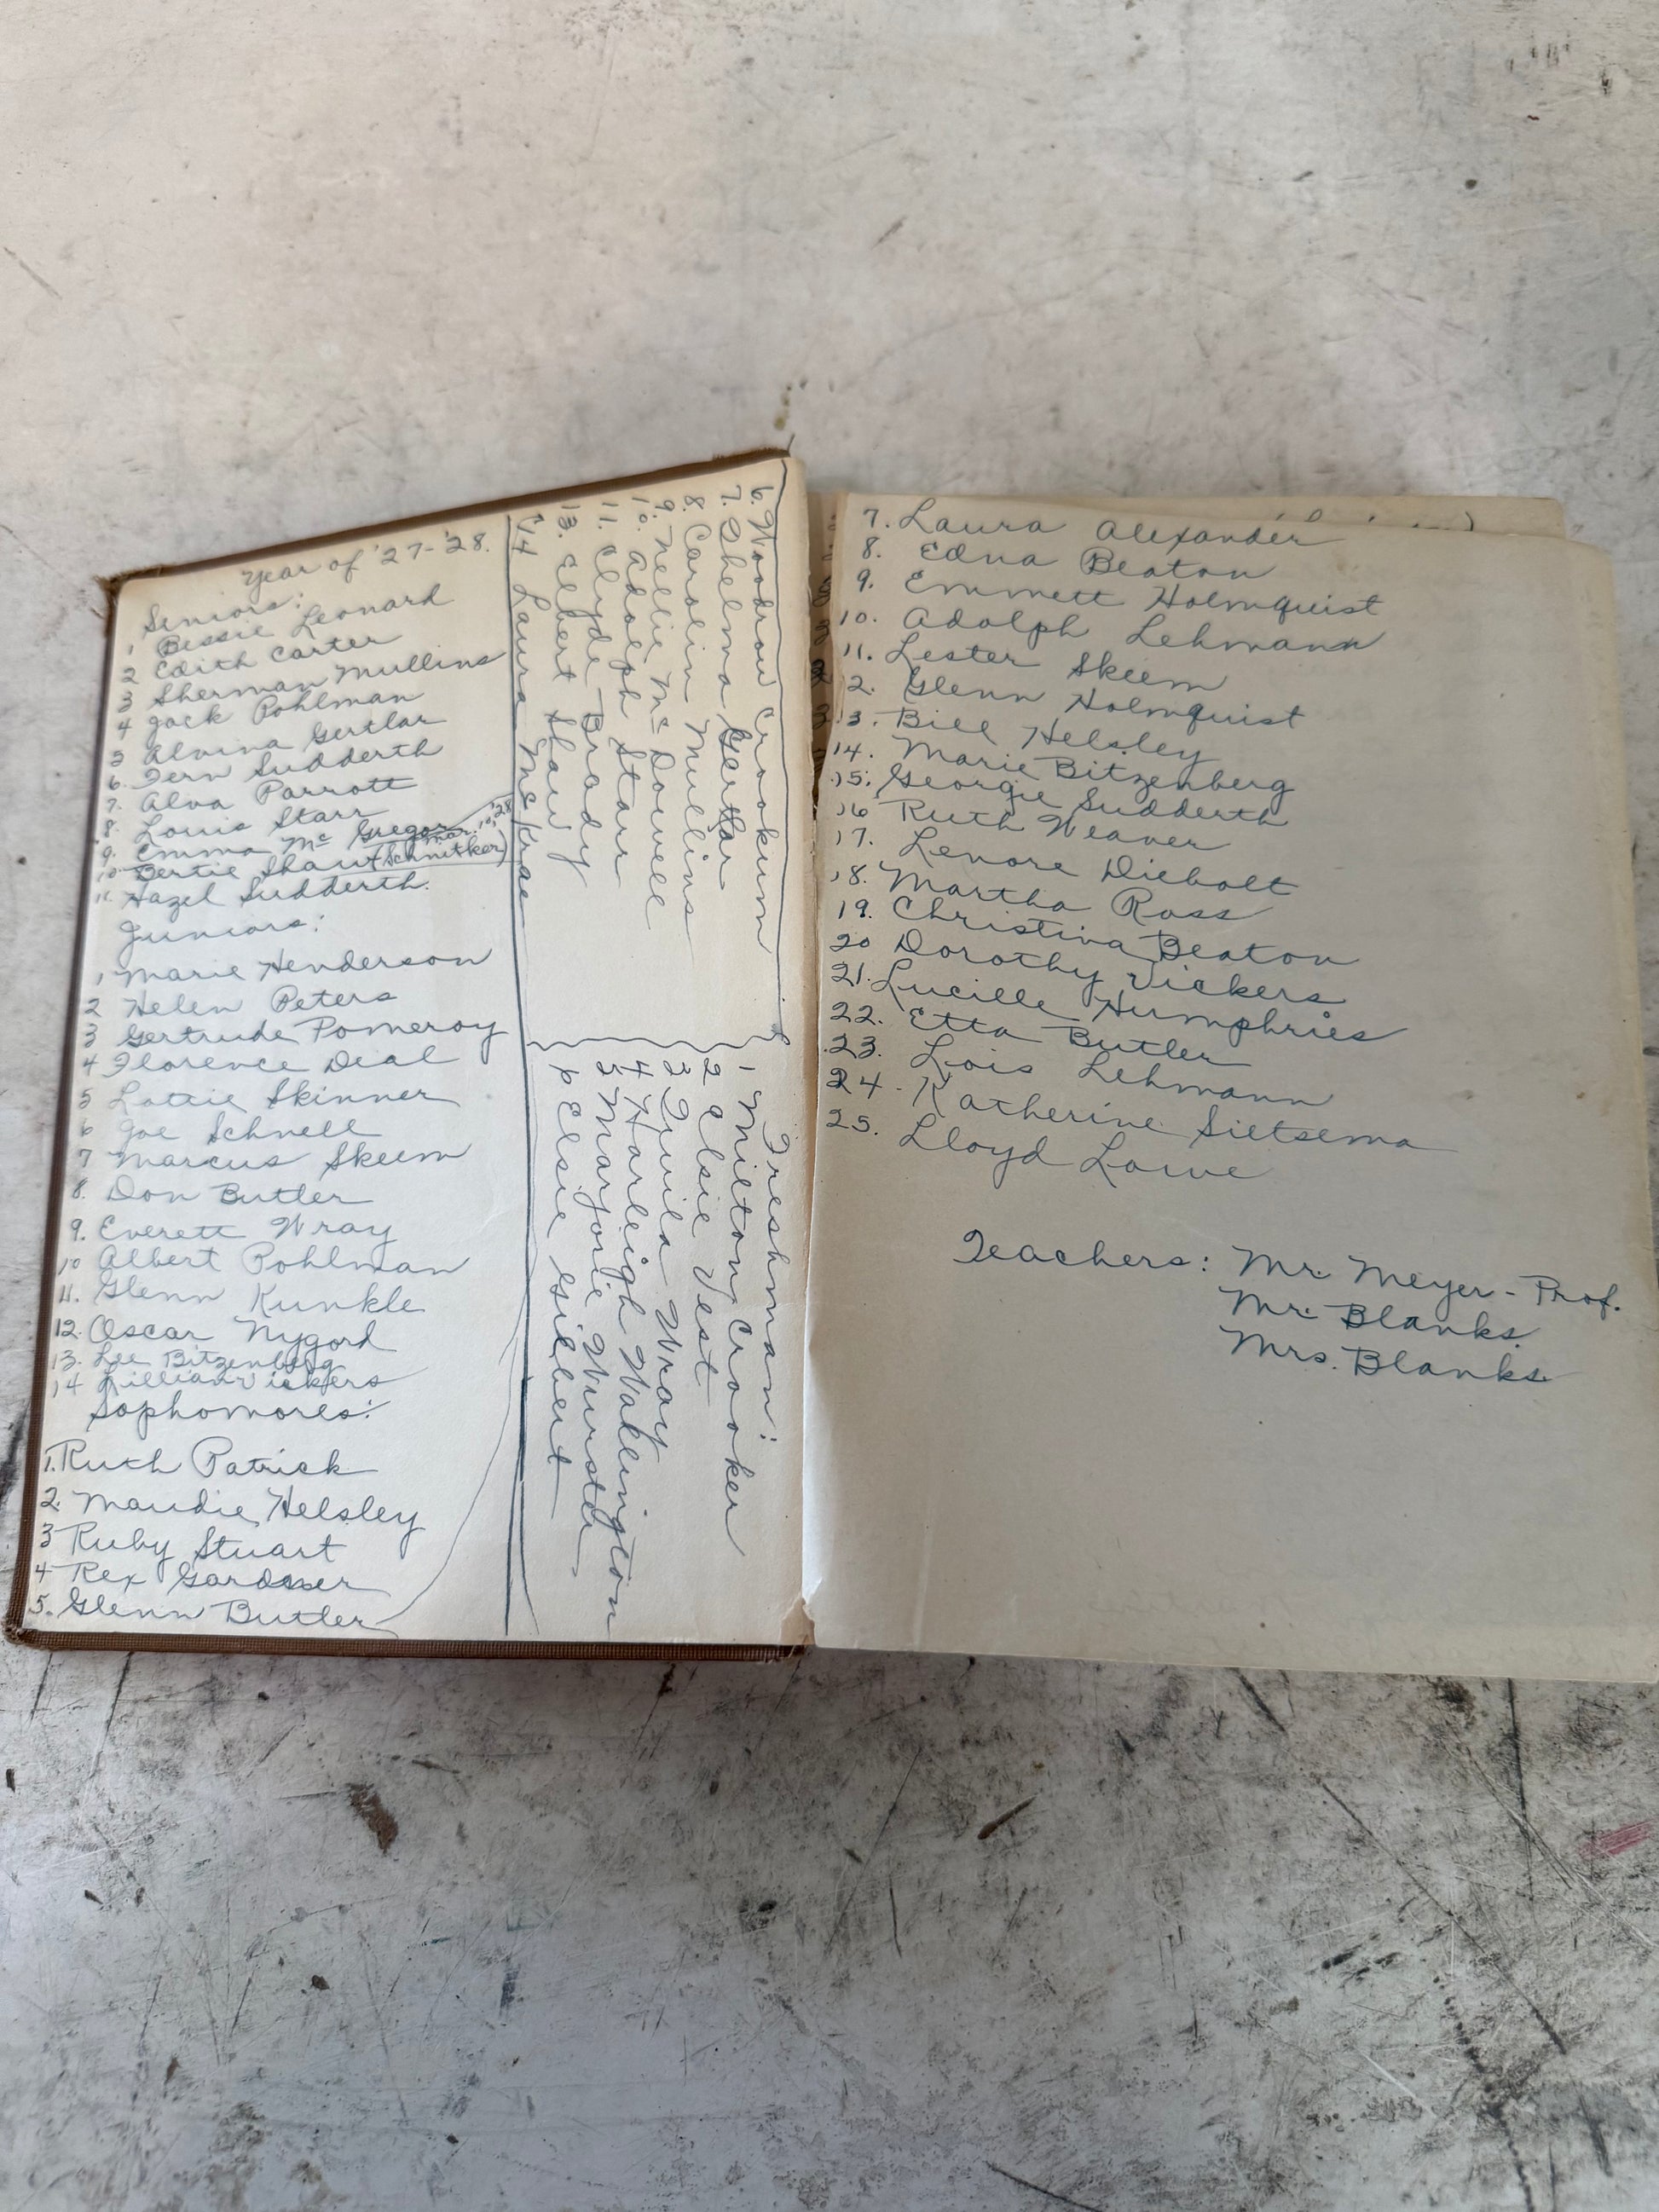 Year of '27-'28.
Seniors:
1 Bessie Leonard
2 Edith Carter
3 Sherman Mullins
4 Jack Pohlman
5 Alvina Gertlar
6. Fern Sudderth
7. Alva Parrott
8. Louis Starr
9. Emma Mc Gregor
10 Bertie Shaw (Schnitker) Mar. 10, '28
11. Hazel Sudderth.
Juniors:
1 Marie Henderson
2 Helen Peters
3 Gertrude Pomeroy
4 Florence Deal
5 Lottie Skinner
6 Joe Schnell
7 Marcus Skeem
8. Don Butler
9. Everett Wray
10 Albert Pohlman
11. Glenn Kunkle
12. Oscar Nygord
13. Lee Bitzenberg
14 Lillian Vickers
Sophomores:
1. Ruth Patrick
2. Maudie Helsley
3 Ruby Stuart
4 Rex Gardner
5. Glenn Butler
6. Woodrow Crookum
7. Thelma Gertlar
8. Carolin Mullins
9. Nellie Mc Dowell
10. Adolph Starr
11. Clyde Brady
13. Elbert Shaw
14 Laura McKrae
Freshman:
1 Milton Crooker
2 Elsie Vest
3 Twila Wray
4 Harleigh Wallington
5 Marjorie Wurster
6 Elsie Gilbert
7. Laura Alexander
8. Edna Beaton
9. Emmett Holmquist
10. Adolph Lehmann
11. Lester Skeem
12. Glenn Holmquist
13. Bill Helsley
14. Marie Bitzenberg
15. Georgie Sudderth
16 Ruth Weaver
17. Lenore Diebolt
18. Martha Ross
19. Christina Beaton
20 Dorothy Vickers
21. Lucille Humphries
22. Etta Butler
23. Lois Lehmann
24. Katherine Sietsema
25. Lloyd Lowe
Teachers: Mr. Meyer - Prof.
Mr. Blanks
Mrs. Blanks